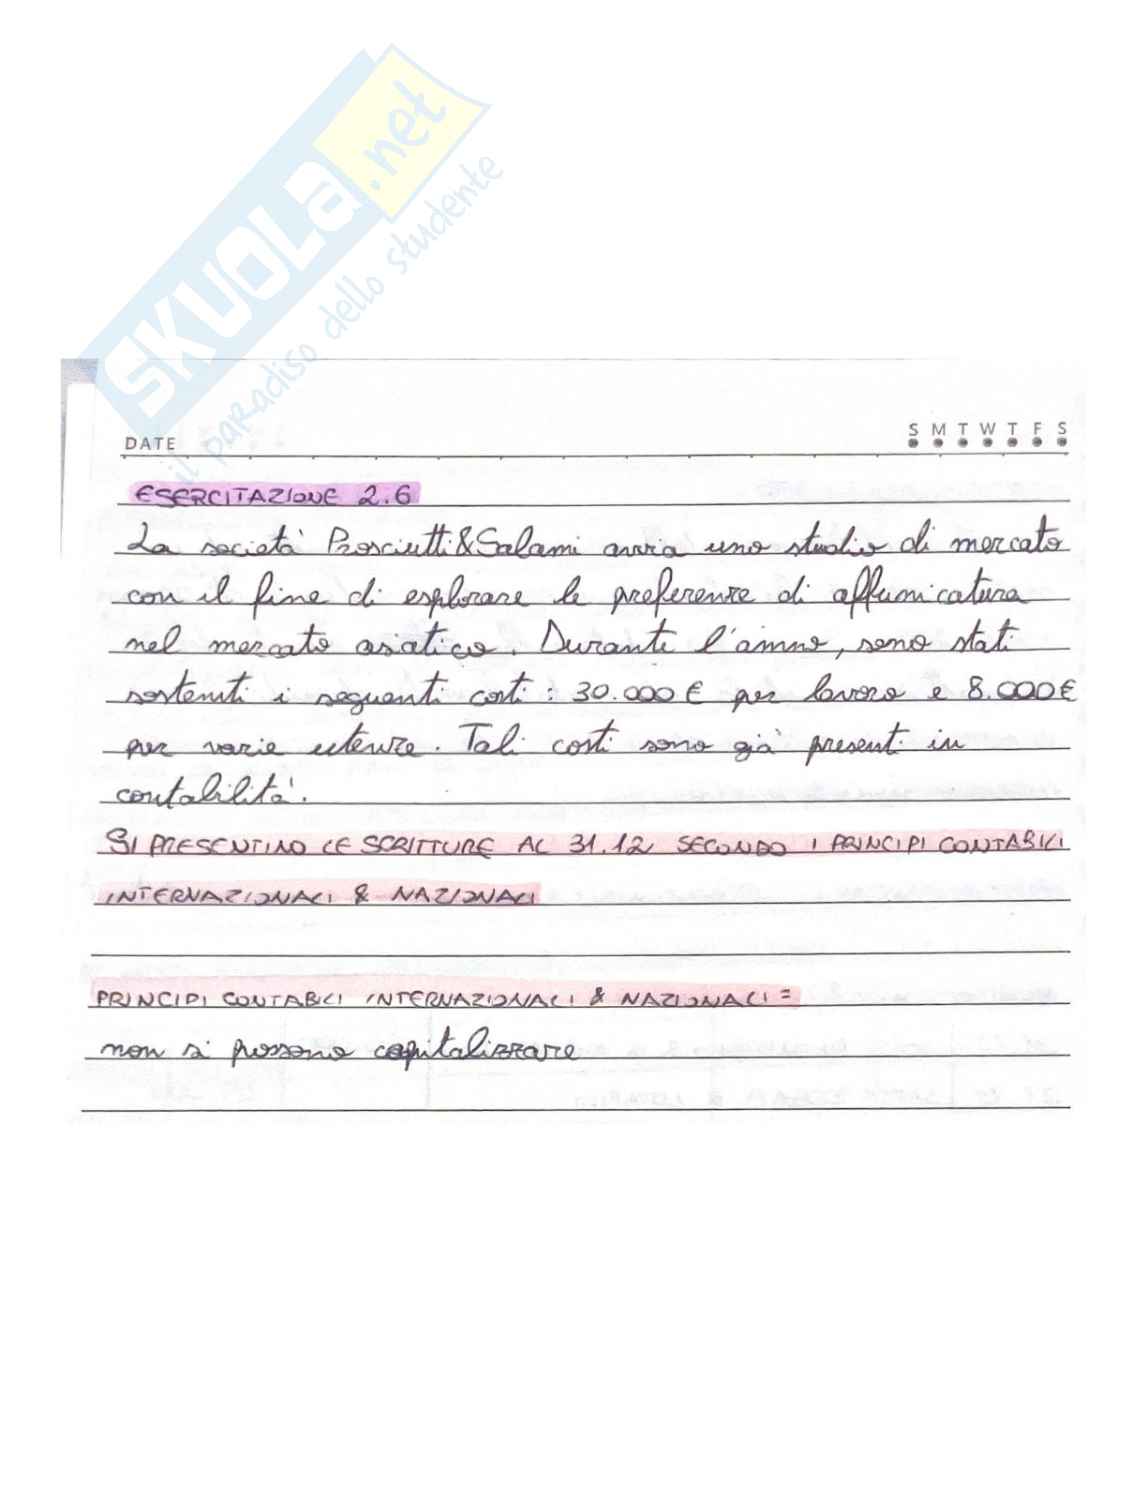 SKUOLA.net
il paradiso dello studente
DATE
S M T W T F S
ESERCITAZIONE 2.6
La società Prosciutti&Salami avvia uno studio di mercato
con il fine di esplorare le preferenze di affumicatura
nel mercato asiatico. Durante l'anno, sono stati
sostenuti i seguenti costi: 30.000€ per lavoro e 8.000€
per varie utenze. Tali costi sono già presenti in
contabilità.
SI PRESENTINO LE SCRITTURE AL 31.12 SECONDO I PRINCIPI CONTABILI
INTERNAZIONALI & NAZIONALI
PRINCIPI CONTABILI INTERNAZIONALI & NAZIONALI =
non si possono capitalizzare